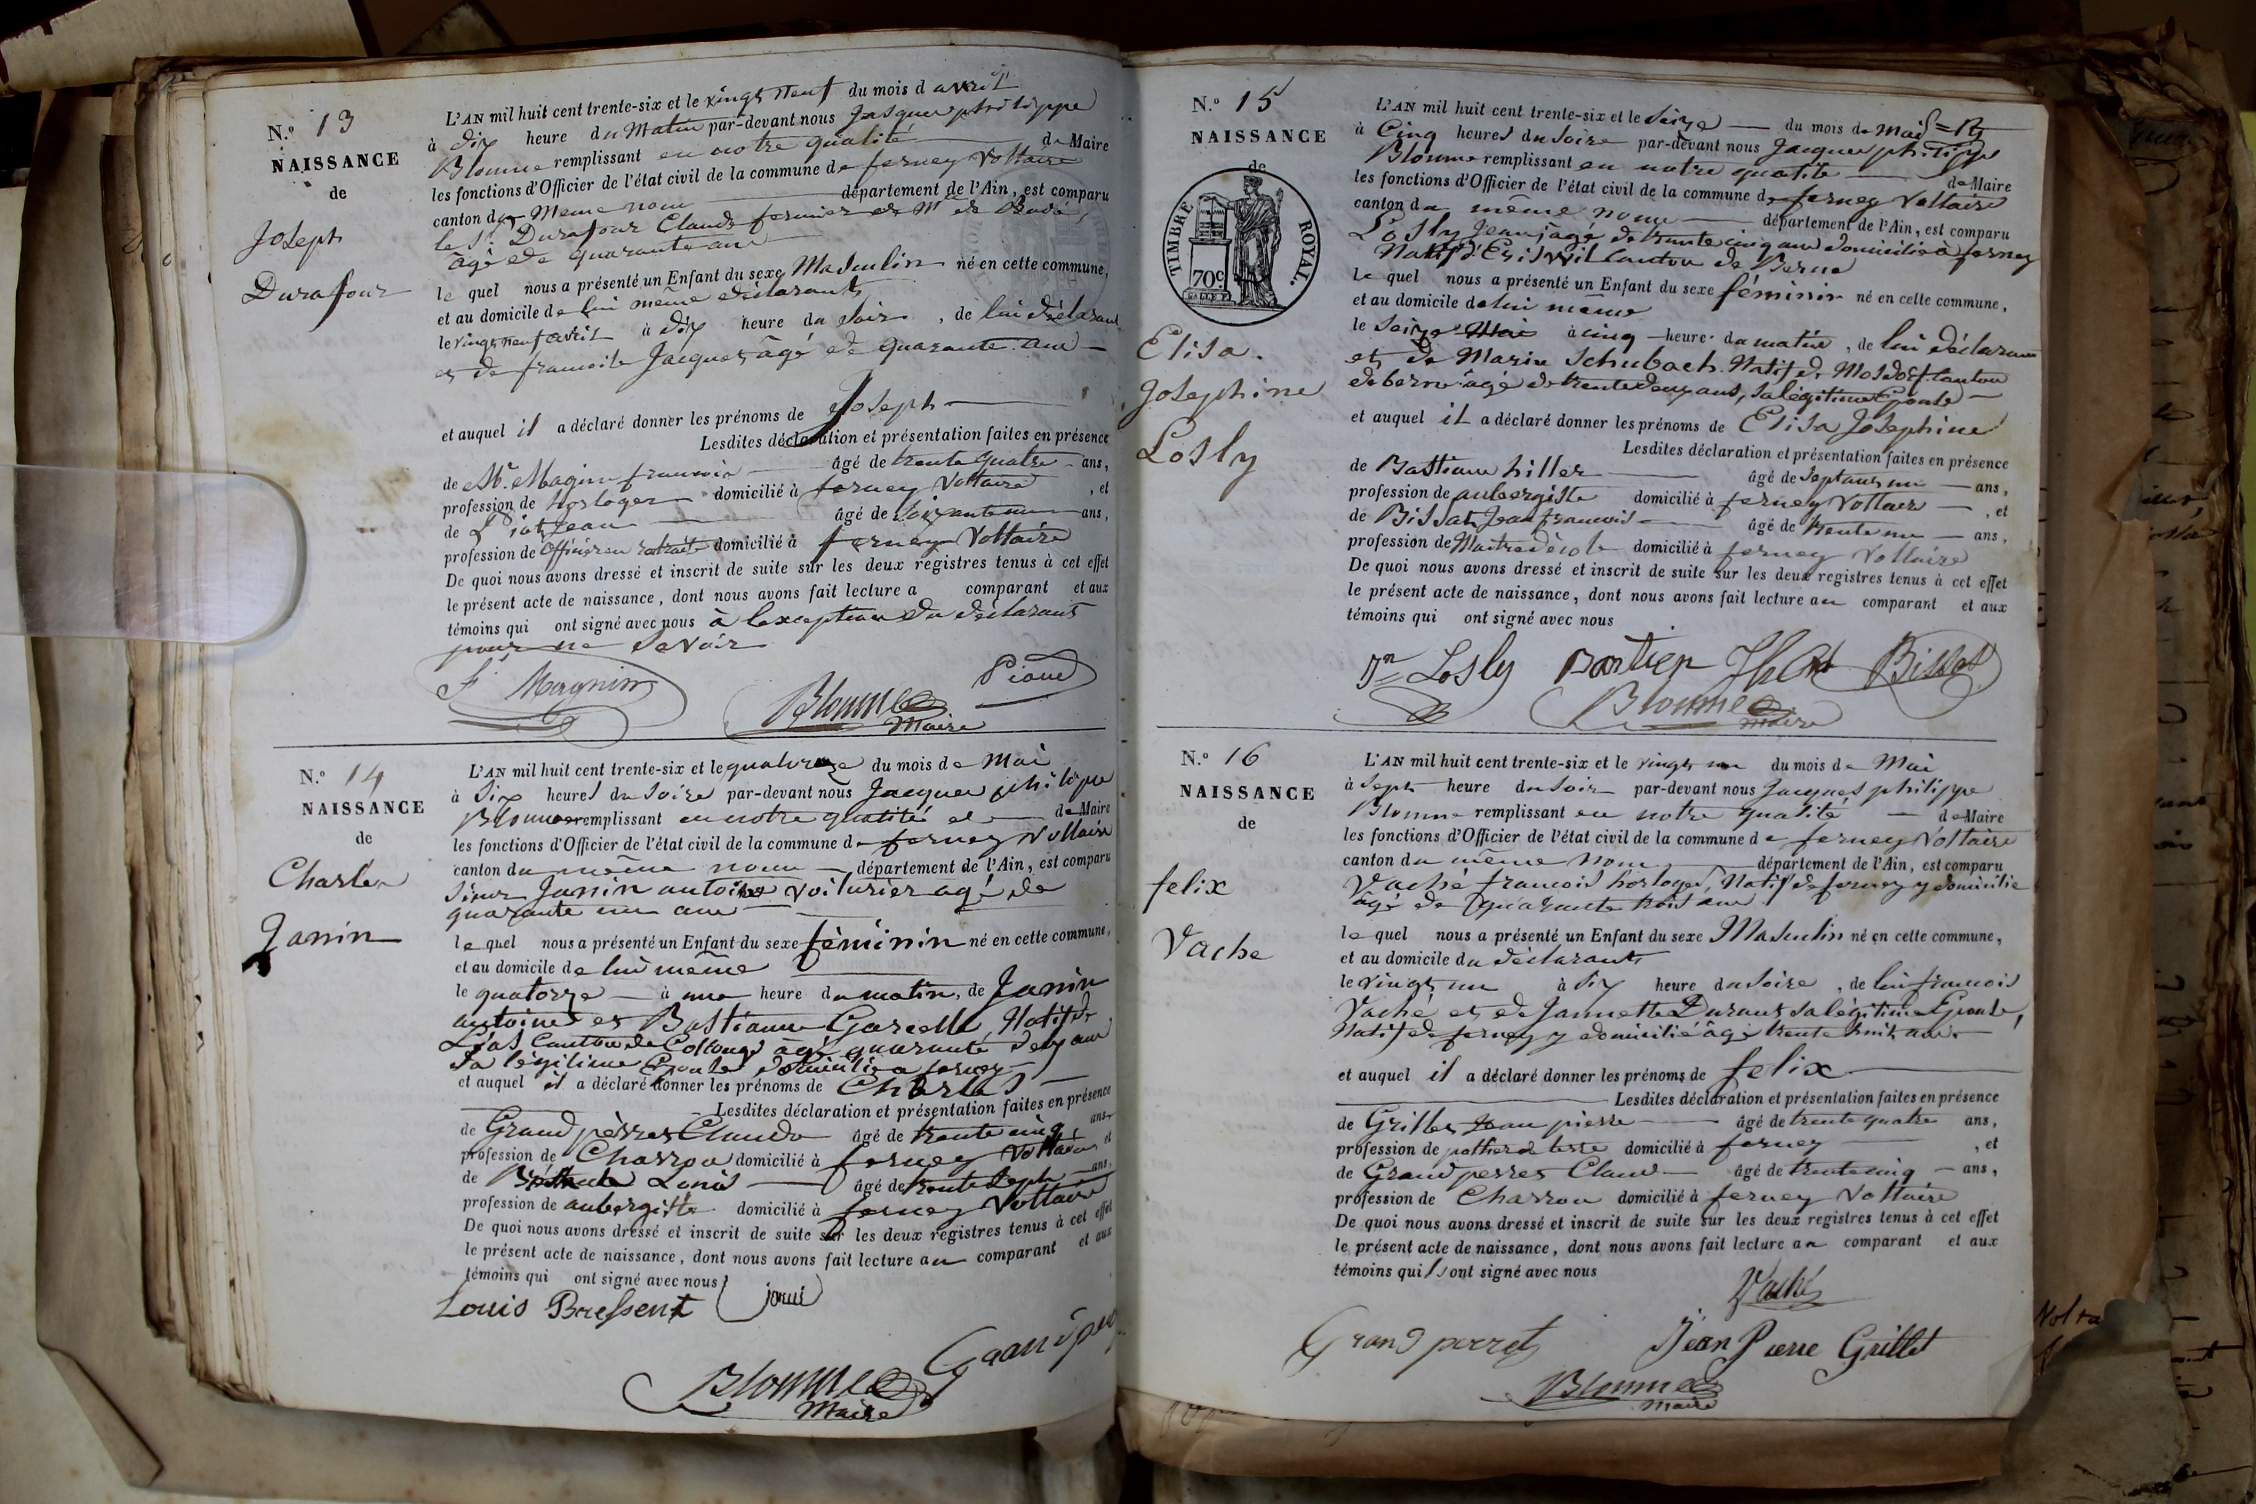 N.º 13
NAISSANCE
de
Joseph
Durafour
L'AN mil huit cent trente-six et le vingt neuf du mois d avril
à dix heure du Matin par-devant nous Jacques philippe
Blonme remplissant en notre qualité de Maire
les fonctions d'Officier de l'état civil de la commune de ferney Voltaire
canton du Meme nom département de l'Ain, est comparu
le Sr. Durafour Claude fermier de Mr de Budé
âgé de quarante ans
le quel nous a présenté un Enfant du sexe Masculin né en cette commune,
et au domicile de lui même déclarant
le vingt neuf avril à dix heure du Soir, de lui déclarant
et de francoise Jacques âgé de quarante ans
et auquel il a déclaré donner les prénoms de Joseph
Lesdites déclaration et présentation faites en présence
de Mr. Magnin francois âgé de trente quatre ans,
profession de horloger domicilié à ferney Voltaire, et
de Jean âgé de Soixante un ans,
profession de Officier en retraite domicilié à ferney Voltaire
De quoi nous avons dressé et inscrit de suite sur les deux registres tenus à cet effet
le présent acte de naissance, dont nous avons fait lecture a comparant et aux
témoins qui ont signé avec nous à l'exception du déclarant
pour ne Savoir
F. Magnin
Blonme
Maire
N.º 14
NAISSANCE
de
Charles
Janin
L'AN mil huit cent trente-six et le quatorze du mois de Mai
à Six heures du Soire par-devant nous Jacques philipe
Blonme remplissant en notre qualité de de Maire
les fonctions d'Officier de l'état civil de la commune de ferney Voltaire
canton du même nom département de l'Ain, est comparu
Sieur Janin antoine voiturier agé de
quarante un ans
le quel nous a présenté un Enfant du sexe féminin né en cette commune,
et au domicile de lui même
le quatorze à une heure du matin, de Janin
antoine et Bastianne Garcelle, Natif de
Léas Canton de Collonge âgé quarante deux ans
Sa légitime Epouse domicilié a ferney
et auquel il a déclaré donner les prénoms de Charles
Lesdites déclaration et présentation faites en présence
de Grand perres Claude âgé de trente cinq ans
profession de Charron domicilié à ferney Voltaire et
de Louis âgé de trente Sept ans,
profession de aubergiste domicilié à ferney Voltaire
De quoi nous avons dressé et inscrit de suite sur les deux registres tenus à cet effet
le présent acte de naissance, dont nous avons fait lecture au comparant et aux
témoins qui ont signé avec nous
Louis Bressent
Blonme
Maire
N.º 15
NAISSANCE
de
TIMBRE ROYAL.
70c
Elisa
Josephine
Losly
L'AN mil huit cent trente-six et le Seize du mois de Mai
à Cinq heures du Soire par-devant nous Jacques philippe
Blonme remplissant en notre qualité de Maire
les fonctions d'Officier de l'état civil de la commune de ferney Voltaire
canton du même nom département de l'Ain, est comparu
Losly Jean, âgé de trente cinq ans domicilié à ferney
Natif d'Erisvil Canton de Berne
le quel nous a présenté un Enfant du sexe féminin né en cette commune,
et au domicile de lui même
le Seize Mai à cinq heure du matin, de lui déclarant
et de Marie Schubach Natif de Mosdorf canton
de berne âgé de trente deux ans, Sa légitime Epouse
et auquel il a déclaré donner les prénoms de Elisa Josephine
Lesdites déclaration et présentation faites en présence
de Bastiann hiller âgé de Septante un ans,
profession de aubergiste domicilié à ferney Voltaire, et
de Bissat Jean francois âgé de trente un ans,
profession de Maitre décole domicilié à ferney Voltaire
De quoi nous avons dressé et inscrit de suite sur les deux registres tenus à cet effet
le présent acte de naissance, dont nous avons fait lecture au comparant et aux
témoins qui ont signé avec nous
Jn Losly Bissat
Blonme
Maire
N.º 16
NAISSANCE
de
felix
Vache
L'AN mil huit cent trente-six et le vingt un du mois de Mai
à Sept heure du Soir par-devant nous Jacques philippe
Blonme remplissant en notre qualité de Maire
les fonctions d'Officier de l'état civil de la commune de ferney Voltaire
canton du même nom département de l'Ain, est comparu
Vaché francois horloger, Natif de ferney y domicilié
âgé de quarante trois ans
le quel nous a présenté un Enfant du sexe Masculin né en cette commune,
et au domicile du déclarant
le vingt un à Six heure du Soire, de lui francois
Vaché et de Jannette Durant sa légitime Epouse,
Natif de ferney y domicilié âgé trente huit ans
et auquel il a déclaré donner les prénoms de felix
Lesdites déclaration et présentation faites en présence
de Grillet Jean pierre âgé de trente quatre ans,
profession de pottier de terre domicilié à ferney, et
de Grand perres Claude âgé de trente cinq ans,
profession de Charron domicilié à ferney Voltaire
De quoi nous avons dressé et inscrit de suite sur les deux registres tenus à cet effet
le présent acte de naissance, dont nous avons fait lecture au comparant et aux
témoins qui ont signé avec nous
Vaché
Grand perret Jean Pierre Grillet
Blonme
Maire